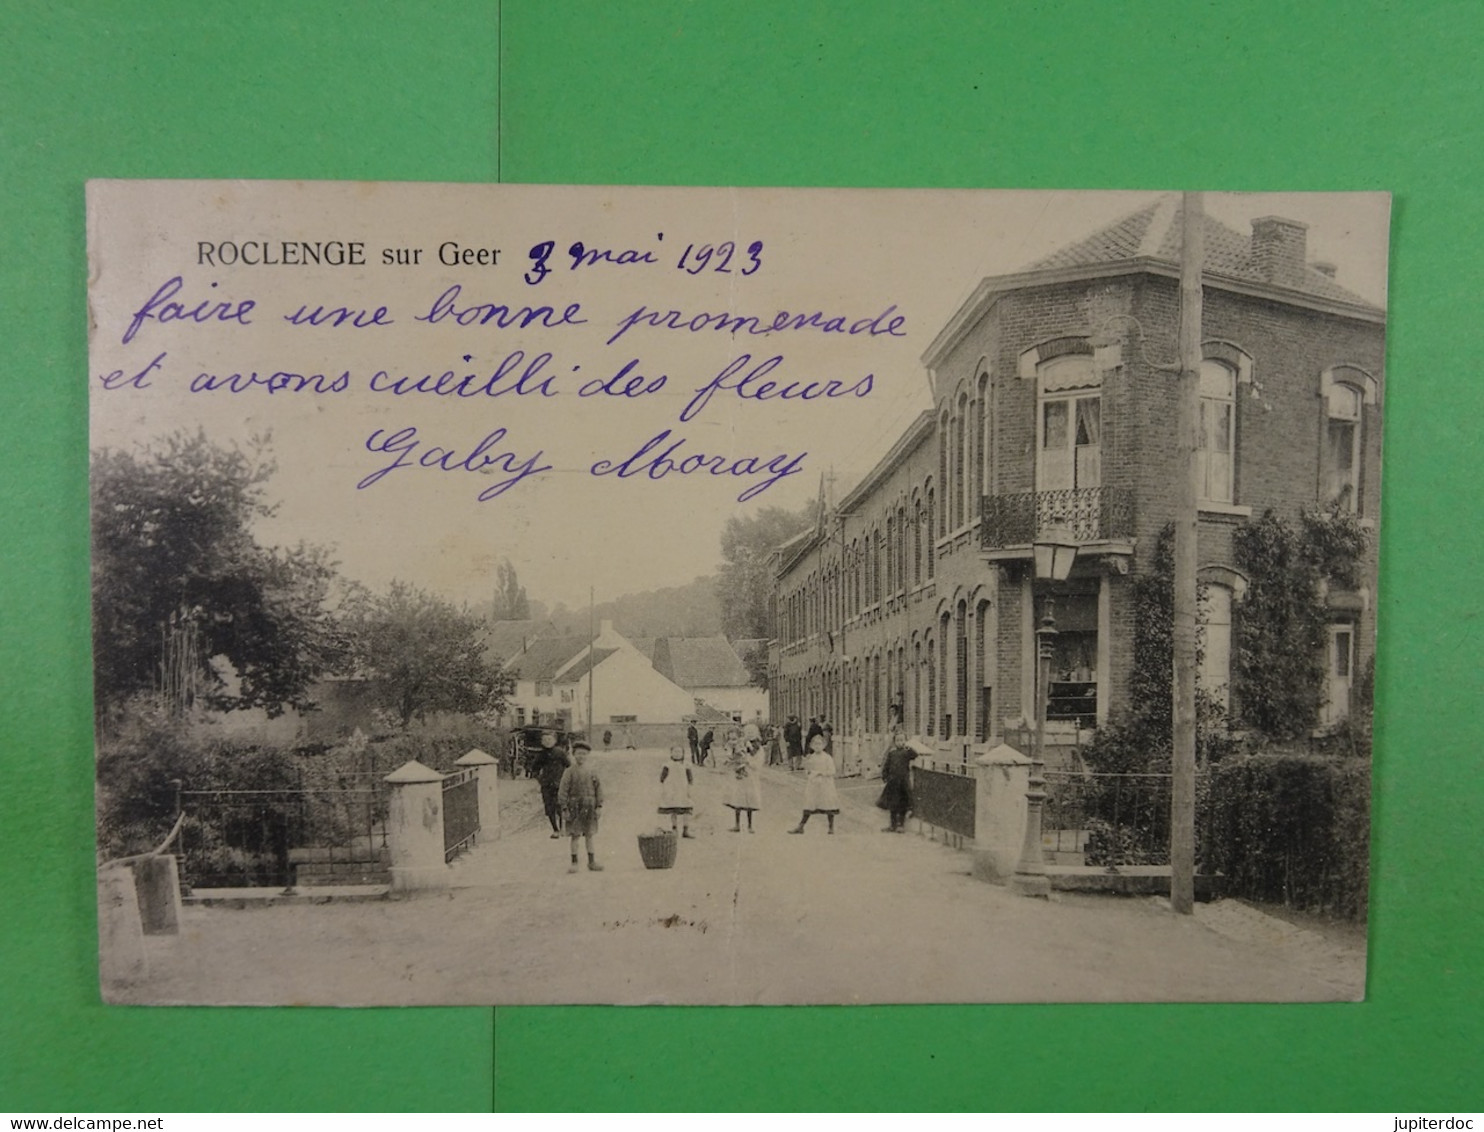 ROCLENGE sur Geer 3 mai 1923
faire une bonne promenade
et avons cueilli des fleurs
Gaby Moray
https://www.delcampe.net
jupiterdoc